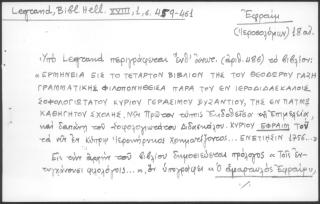 Legrand, Bibl. Hell. XVIII, 1, σ. 459-461
Ἐφραίμ
(Ἱεροσολύμων) 18 αἰ.
Ὑπὸ Legrand περιγράφεται ὑπ' ἀριθ. (ἀριθ. 486) τὸ βιβλίον:
« ΕΡΜΗΝΕΙΑ ΕΙΣ ΤΟ ΤΕΤΑΡΤΟΝ ΒΙΒΛΙΟΝ ΤΗΣ ΤΟΥ ΘΕΟΔΩΡΟΥ ΓΑΖΗ
ΓΡΑΜΜΑΤΙΚΗΣ ΦΙΛΟΠΟΝΗΘΕΙΣΑ ΠΑΡΑ ΤΟΥ ΕΝ ΙΕΡΟΔΙΔΑΣΚΑΛΟΙΣ
ΣΟΦΟΛΟΓΙΩΤΑΤΟΥ ΚΥΡΙΟΥ ΓΕΡΑΣΙΜΟΥ ΒΥΖΑΝΤΙΟΥ, ΤΗΣ ΕΝ ΠΑΤΜΩ
ΚΑΘΗΓΗΤΟΥ ΣΧΟΛΗΣ, Νῦν Πρῶτον τύποις Ἐκδοθεῖσα
καὶ δαπάνῃ τοῦ Σοφολογιωτάτου Διδασκάλου ΚΥΡΙΟΥ ΕΦΡΑΙΜ τοῦ
τὰ νῦν ἐν Κύπρῳ Ἱεροκήρυκος Χρηματίζοντος... ΕΝΕΤΙΗΣΙΝ 1756... »
Εἰς τὴν ἀρχὴν τοῦ βιβλίου δημοσιεύεται πρόλογος « Τοῖς ἐν-
τυγχάνουσι φιλολόγοις... », ὃν ὑπογράφει « Ὁ ἁμαρτωλὸς Ἐφραίμ »,